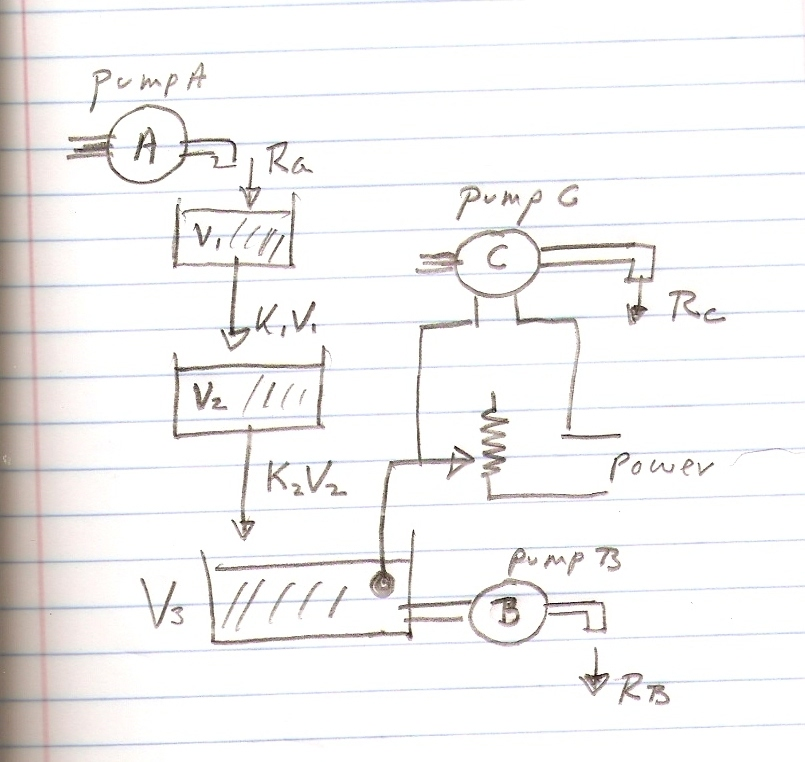 Pump A
A
Ra
V1
K1V1
V2
K2V2
V3
Pump C
C
Rc
Power
Pump B
B
RB